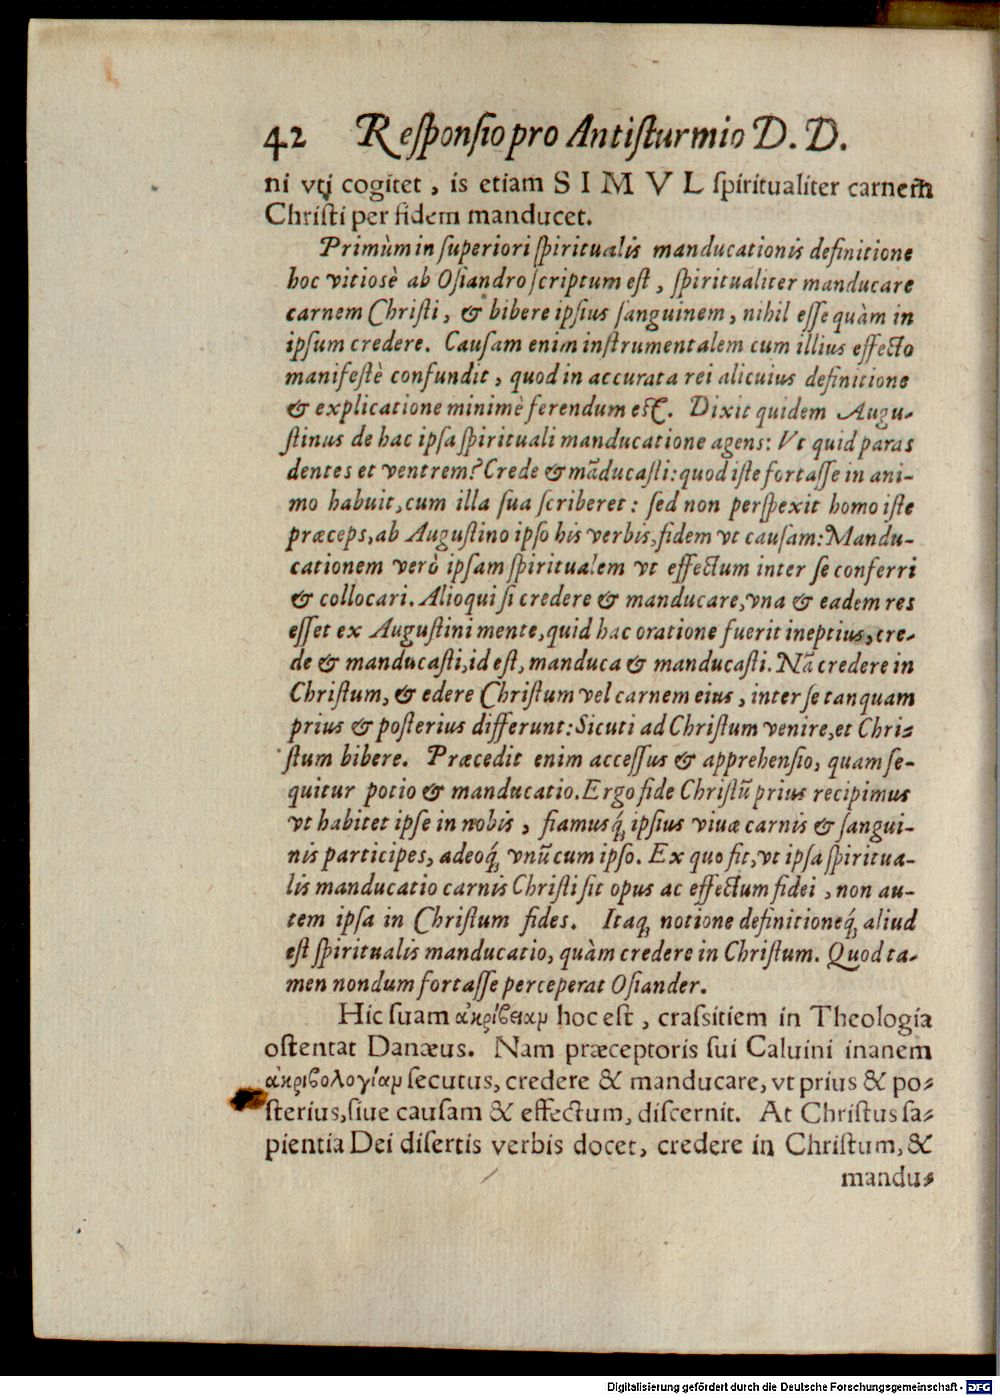 42 Responsio pro Antisturmio D. D.
ni vti cogitet, is etiam S I M V L spiritualiter carnem
Christi per fidem manducet.
Primùm in superiori spiritualis manducationis definitione
hoc vitiosè ab Osiandro scriptum est, spiritualiter manducare
carnem Christi, & bibere ipsius sanguinem, nihil esse quàm in
ipsum credere. Causam enim instrumentalem cum illius effecto
manifestè confundit, quod in accurata rei alicuius definitione
& explicatione minimè ferendum est. Dixit quidem Augu-
stinus de hac ipsa spirituali manducatione agens: Vt quid paras
dentes et ventrem? Crede & mãducasti: quod iste fortasse in ani-
mo habuit, cum illa sua scriberet: sed non perspexit homo iste
præceps, ab Augustino ipso his verbis, fidem vt causam: Mandu-
cationem verò ipsam spiritualem vt effectum inter se conferri
& collocari. Alioqui si credere & manducare, vna & eadem res
esset ex Augustini mente, quid hac oratione fuerit ineptius, cre-
de & manducasti, id est, manduca & manducasti. Nã credere in
Christum, & edere Christum vel carnem eius, inter se tanquam
prius & posterius differunt: Sicuti ad Christum venire, et Chri-
stum bibere. Præcedit enim accessus & apprehensio, quam se-
quitur potio & manducatio. Ergo fide Christũ prius recipimus
vt habitet ipse in nobis, fiamusq́; ipsius viuæ carnis & sangui-
nis participes, adeoq́; vnũ cum ipso. Ex quo fit, vt ipsa spiritua-
lis manducatio carnis Christi sit opus ac effectum fidei, non au-
tem ipsa in Christum fides. Itaq; notione definitioneq́; aliud
est spiritualis manducatio, quàm credere in Christum. Quod ta-
men nondum fortasse perceperat Osiander.
Hic suam ἀκρίβειαμ hoc est, crassitiem in Theologia
ostentat Danæus. Nam præceptoris sui Caluini inanem
ἀκριβολογίαμ secutus, credere & manducare, vt prius & po-
sterius, siue causam & effectum, discernit. At Christus sa-
pientia Dei disertis verbis docet, credere in Christum, &
mandu-
Digitalisierung gefördert durch die Deutsche Forschungsgemeinschaft - DFG